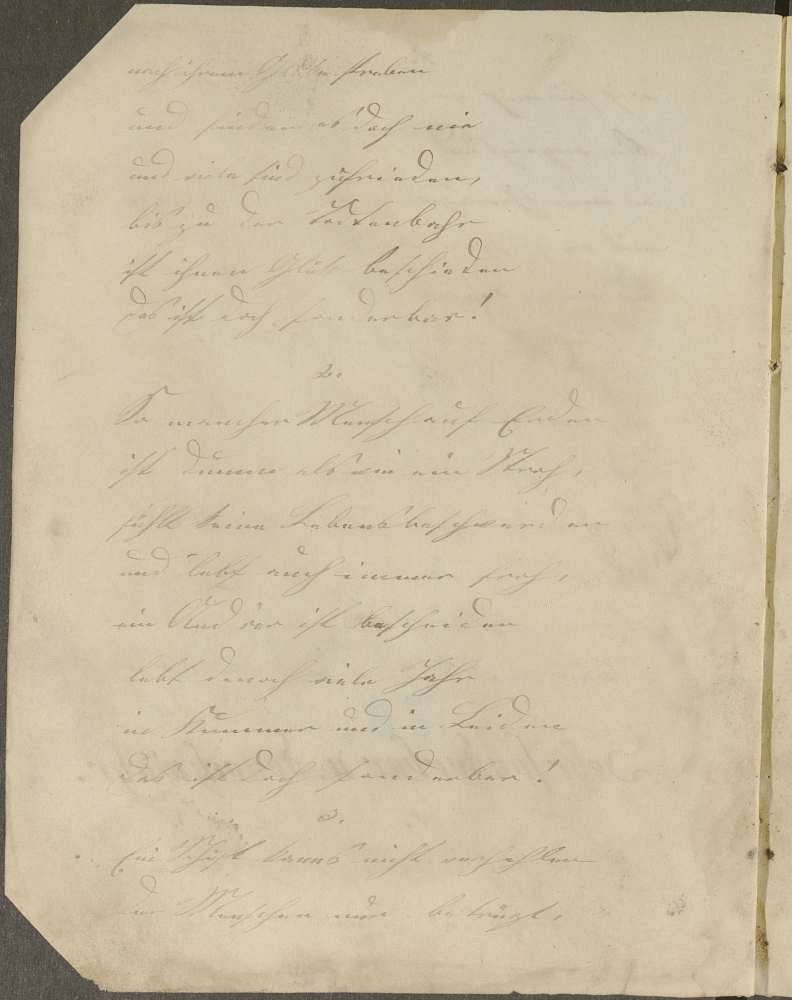 nach ihrem Glücke streben
und finden es doch nie
und viele sind zufrieden,
bis zu der Todtenbahr
ist ihnen Glück beschieden
das ist doch sonderbar!
2.
So mancher Mensch auf Erden
ist dumm als wie ein Stroh,
fühlt keine Lebensbeschwerden
und lebt auch immer froh,
ein Andrer ist bescheiden
lebt denoch viele Jahr
in Kummer und in Leiden
das ist doch sonderbar!
3.
Ein kanns nicht verhehlen
der Menschen nur betrügt,